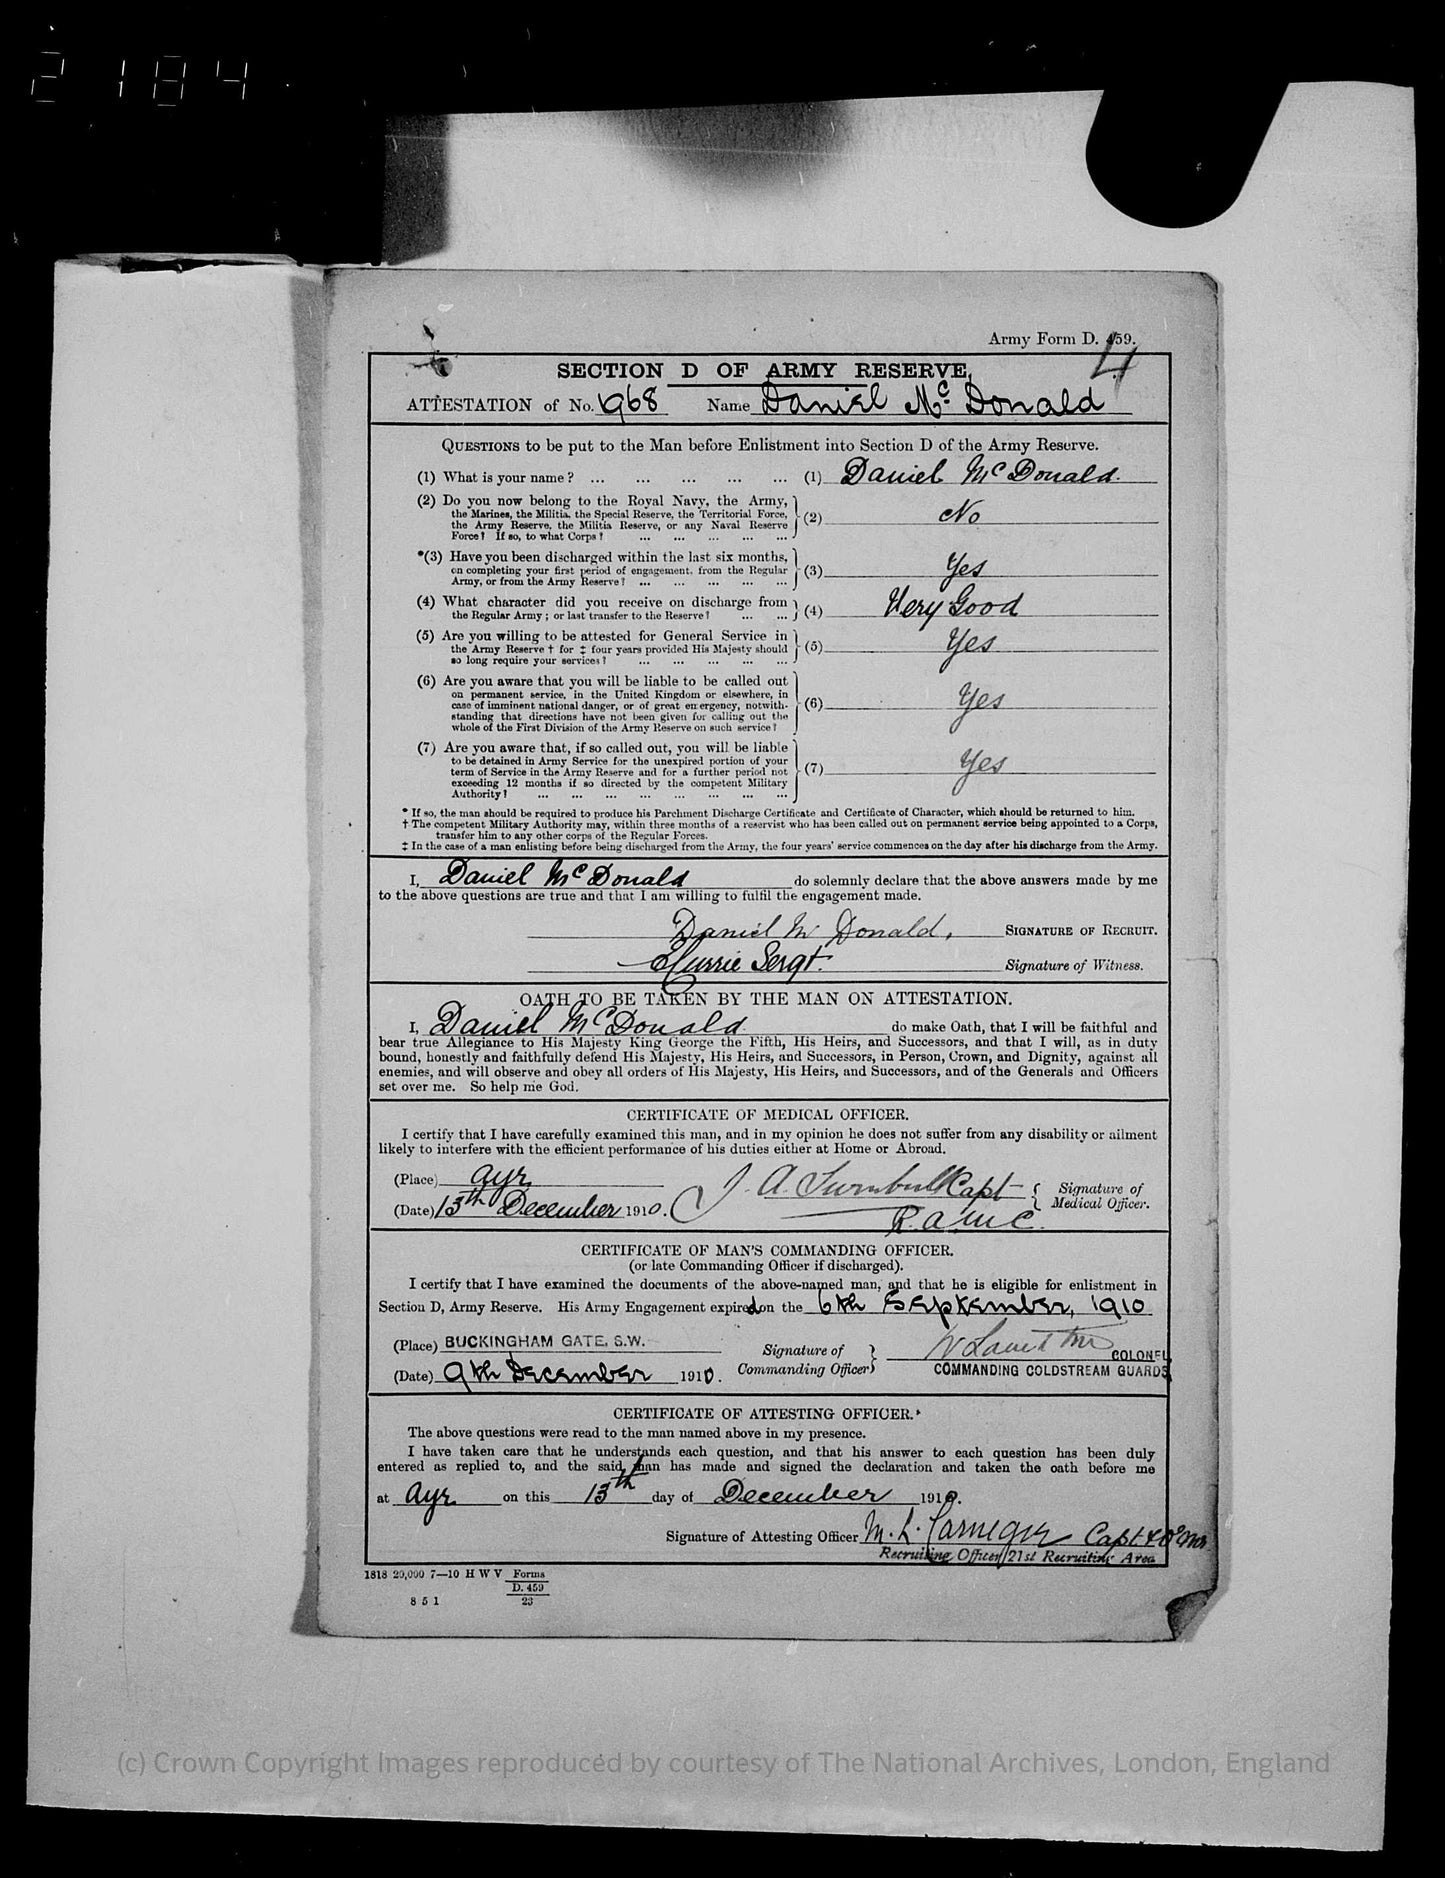 2184
Army Form D. 459.
4
SECTION D OF ARMY RESERVE.
ATTESTATION of No. 1968 Name Daniel Mc Donald
QUESTIONS to be put to the Man before Enlistment into Section D of the Army Reserve.
(1) What is your name? ... ... ... ... ... (1) Daniel McDonald.
(2) Do you now belong to the Royal Navy, the Army,
the Marines, the Militia, the Special Reserve, the Territorial Force,
the Army Reserve, the Militia Reserve, or any Naval Reserve
Force? If so, to what Corps? ... ... ... ... ... (2) No
*(3) Have you been discharged within the last six months,
on completing your first period of engagement, from the Regular
Army, or from the Army Reserve? ... ... ... ... ... (3) Yes
(4) What character did you receive on discharge from
the Regular Army; or last transfer to the Reserve? ... ... (4) Very Good
(5) Are you willing to be attested for General Service in
the Army Reserve † for ‡ four years provided His Majesty should
so long require your services? ... ... ... ... ... (5) Yes
(6) Are you aware that you will be liable to be called out
on permanent service, in the United Kingdom or elsewhere, in
case of imminent national danger, or of great emergency, notwith-
standing that directions have not been given for calling out the
whole of the First Division of the Army Reserve on such service? (6) Yes
(7) Are you aware that, if so called out, you will be liable
to be detained in Army Service for the unexpired portion of your
term of Service in the Army Reserve and for a further period not
exceeding 12 months if so directed by the competent Military
Authority? ... ... ... ... ... ... ... ... (7) Yes
* If so, the man should be required to produce his Parchment Discharge Certificate and Certificate of Character, which should be returned to him.
† The competent Military Authority may, within three months of a reservist who has been called out on permanent service being appointed to a Corps,
transfer him to any other corps of the Regular Forces.
‡ In the case of a man enlisting before being discharged from the Army, the four years' service commences on the day after his discharge from the Army.
I, Daniel McDonald do solemnly declare that the above answers made by me
to the above questions are true and that I am willing to fulfil the engagement made.
Daniel Mc Donald, SIGNATURE OF RECRUIT.
Currie Sergt. Signature of Witness.
OATH TO BE TAKEN BY THE MAN ON ATTESTATION.
I, Daniel McDonald do make Oath, that I will be faithful and
bear true Allegiance to His Majesty King George the Fifth, His Heirs, and Successors, and that I will, as in duty
bound, honestly and faithfully defend His Majesty, His Heirs, and Successors, in Person, Crown, and Dignity, against all
enemies, and will observe and obey all orders of His Majesty, His Heirs, and Successors, and of the Generals and Officers
set over me. So help me God.
CERTIFICATE OF MEDICAL OFFICER.
I certify that I have carefully examined this man, and in my opinion he does not suffer from any disability or ailment
likely to interfere with the efficient performance of his duties either at Home or Abroad.
(Place) Ayr
(Date) 13th December 1910. J. A. Turnbull Capt Signature of
R.A.M.C. Medical Officer.
CERTIFICATE OF MAN'S COMMANDING OFFICER.
(or late Commanding Officer if discharged).
I certify that I have examined the documents of the above-named man, and that he is eligible for enlistment in
Section D, Army Reserve. His Army Engagement expired on the 6th September, 1910
(Place) BUCKINGHAM GATE, S.W. Signature of COLONEL,
(Date) 9th December 1910. Commanding Officer COMMANDING COLDSTREAM GUARDS.
CERTIFICATE OF ATTESTING OFFICER.*
The above questions were read to the man named above in my presence.
I have taken care that he understands each question, and that his answer to each question has been duly
entered as replied to, and the said man has made and signed the declaration and taken the oath before me
at Ayr on this 13th day of December 1910.
Signature of Attesting Officer M. L. Carnegie Capt
Recruiting Officer 21st Recruiting Area
1818 20,000 7—10 H W V Forms
D. 459
8 5 1 23
(c) Crown Copyright Images reproduced by courtesy of The National Archives, London, England